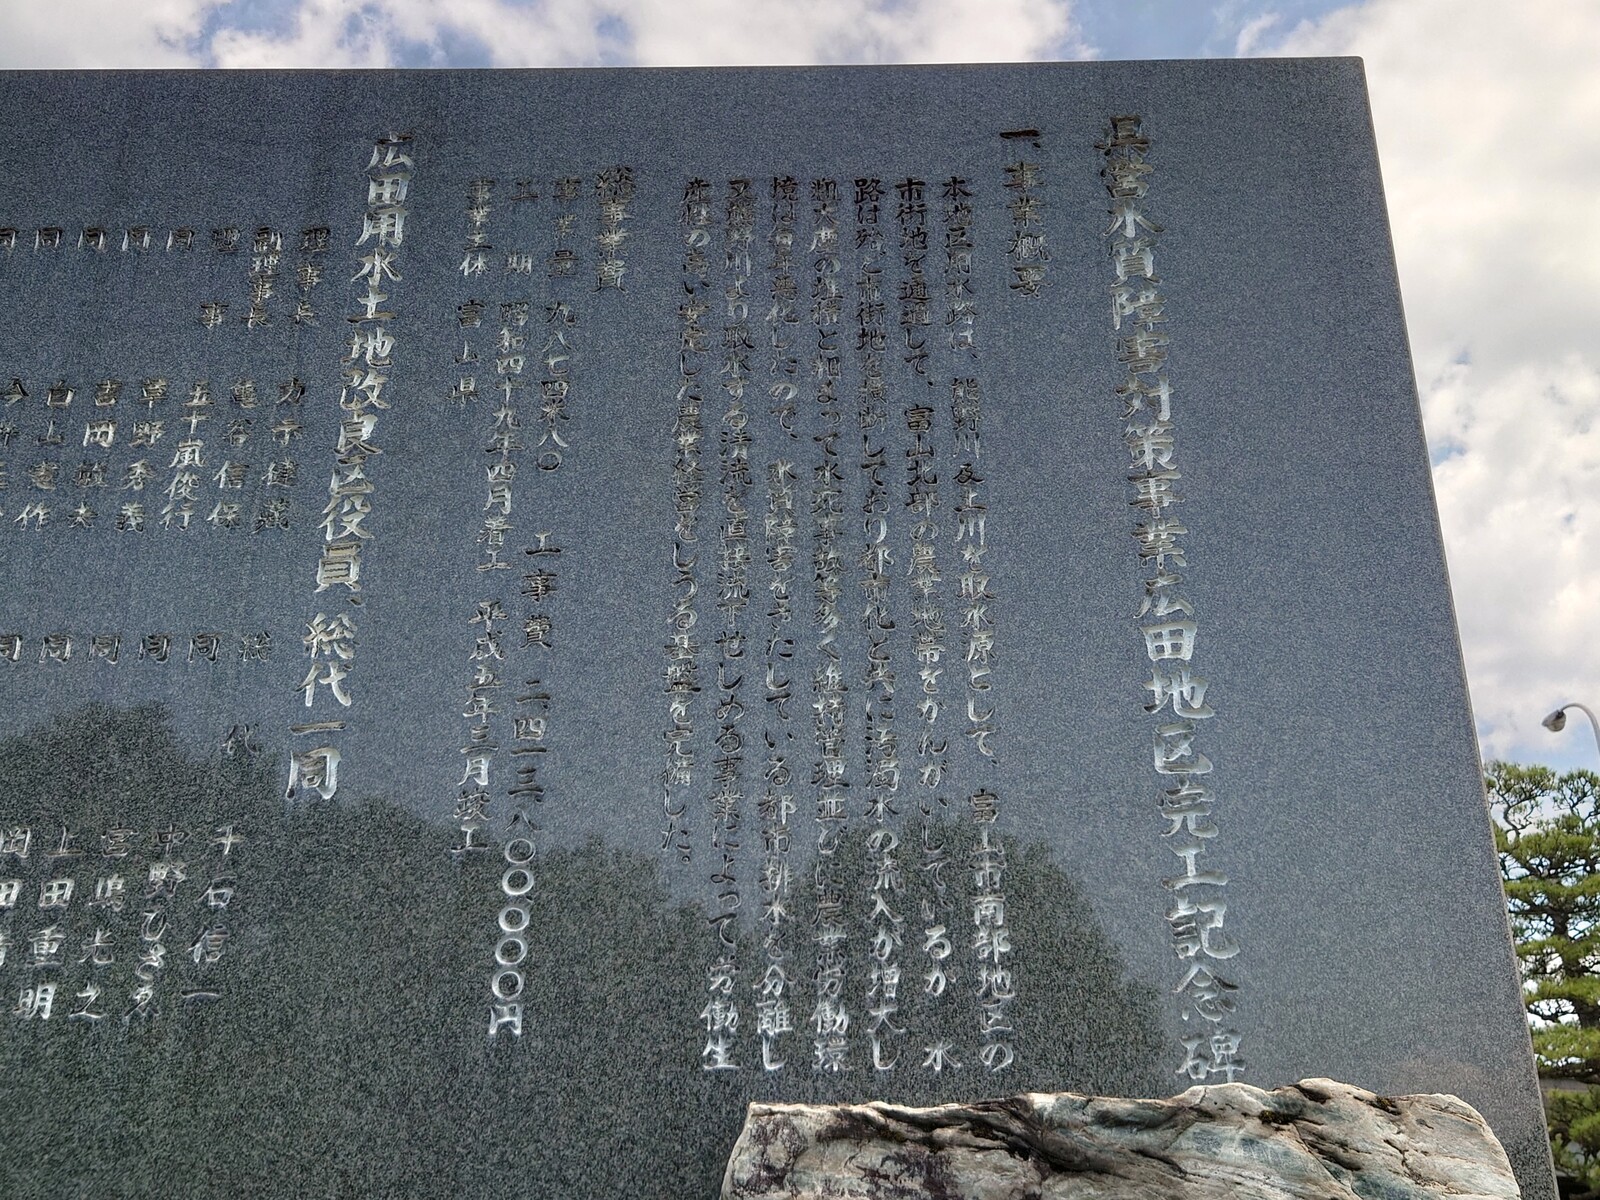 県営水質障害対策事業広田地区完工記念碑
一、事業概要
本地区用水路は、熊野川及土川を取水原として、富山市南部地区の
市街地を通過して、富山北部の農業地帯をかんがいしているが 水
路は殆ど市街地を横断しており都市化と共に汚濁水の流入が増大し
粗大塵の投棄と相まって水死事故等多く維持管理並びに農業労働環
境は毎年悪化したので、水質障害をきたしている都市排水を分離し
又熊野川より取水する清流を直接流下せしめる事業によって 労働生
産性の高い安定した農業経営をしうる基盤を完備した。
総事業費
事業量 九八七四米八〇 工事費 二四一三、八〇〇〇〇〇円
工期 昭和四十九年四月着工 平成五年三月竣工
事業主体 富山県
広田用水土地改良区役員、総代一同
理事長
副理事長 亀谷信保
理事 五十嵐俊行
同 草野秀義
同 吉岡敏夫
同 白山憲作
同
総代 千石信一
同 中野ひさゑ
同 宮嶋光之
同 上田重明
同